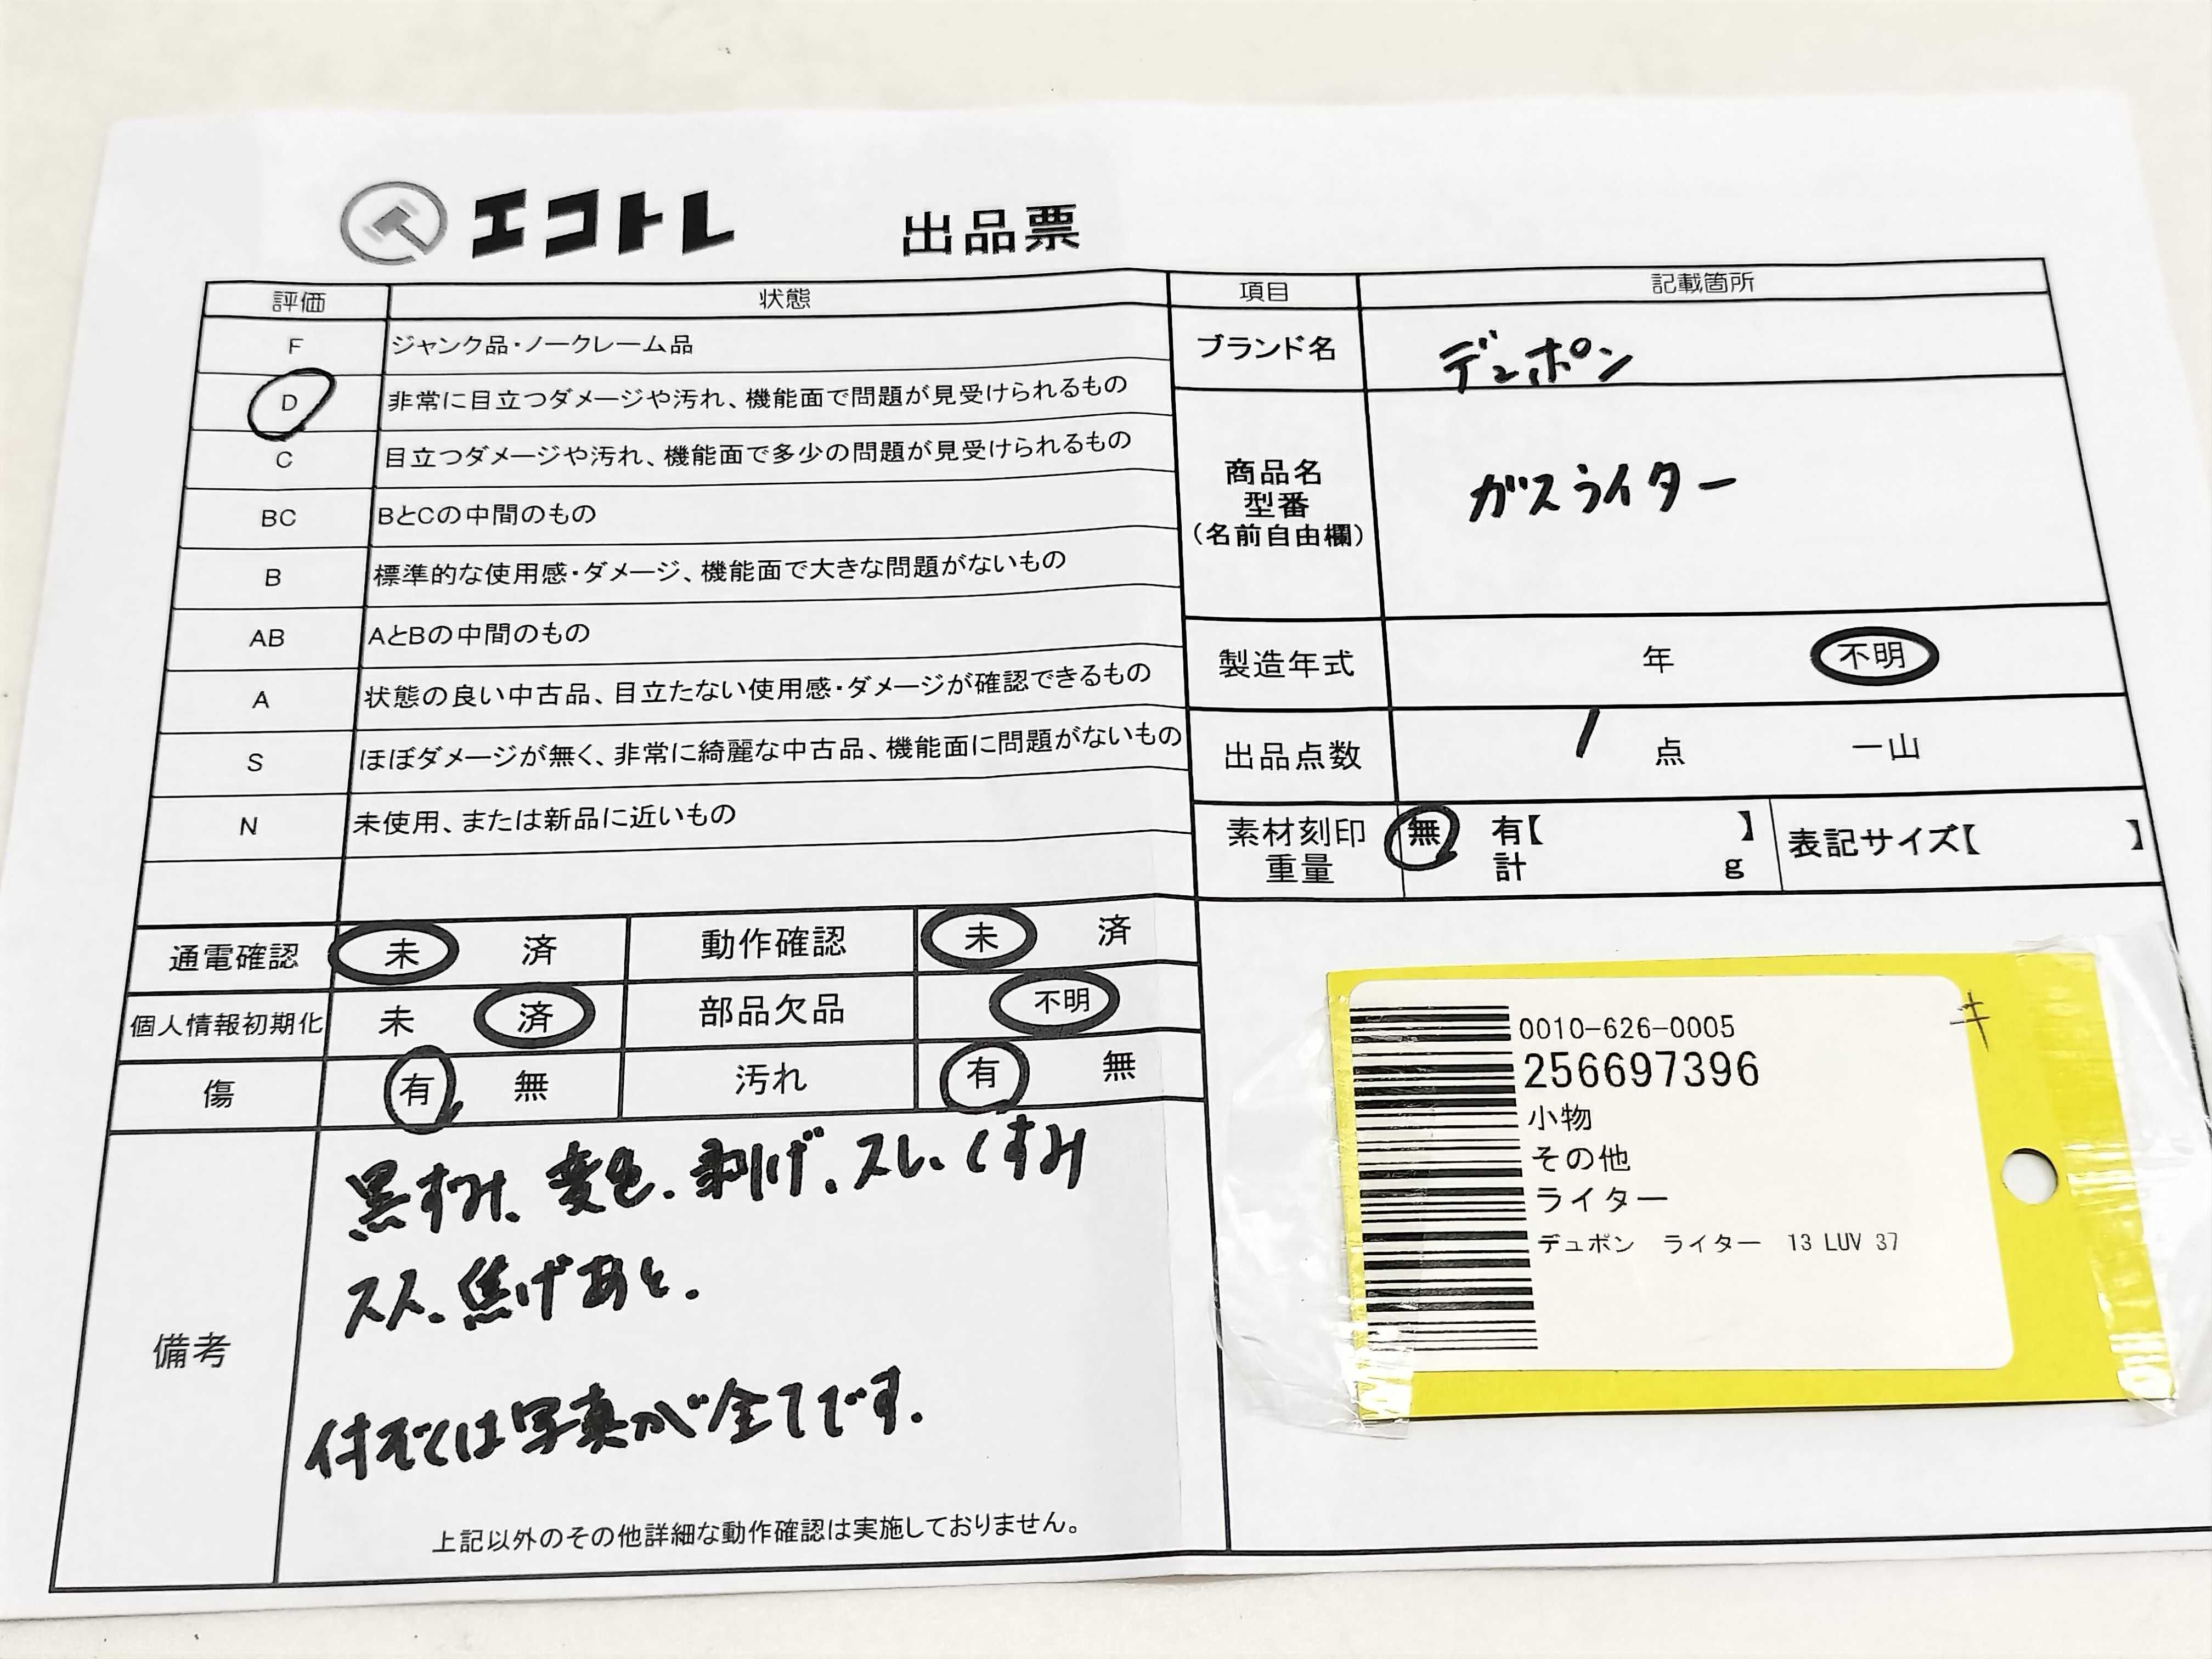 エコトレ 出品票
評価 状態
F ジャンク品・ノークレーム品
D 非常に目立つダメージや汚れ、機能面で問題が見受けられるもの
C 目立つダメージや汚れ、機能面で多少の問題が見受けられるもの
BC BとCの中間のもの
B 標準的な使用感・ダメージ、機能面で大きな問題がないもの
AB AとBの中間のもの
A 状態の良い中古品、目立たない使用感・ダメージが確認できるもの
S ほぼダメージが無く、非常に綺麗な中古品、機能面に問題がないもの
N 未使用、または新品に近いもの
通電確認 未 済 動作確認 未 済
個人情報初期化 未 済 部品欠品 不明
傷 有 無 汚れ 有 無
備考
黒ずみ、変色、剥げ、スレ、くすみ
スス、焦げあと、
付ぞくは写真が全てです。
上記以外のその他詳細な動作確認は実施しておりません。
項目 記載箇所
ブランド名 デュポン
商品名
型番
(名前自由欄)
ガスライター
製造年式 年 不明
出品点数 1 点 一山
素材刻印 無 有【 】
重量 計 g
表記サイズ【 】
0010-626-0005
256697396
小物
その他
ライター
デュポン ライター 13 LUV 37